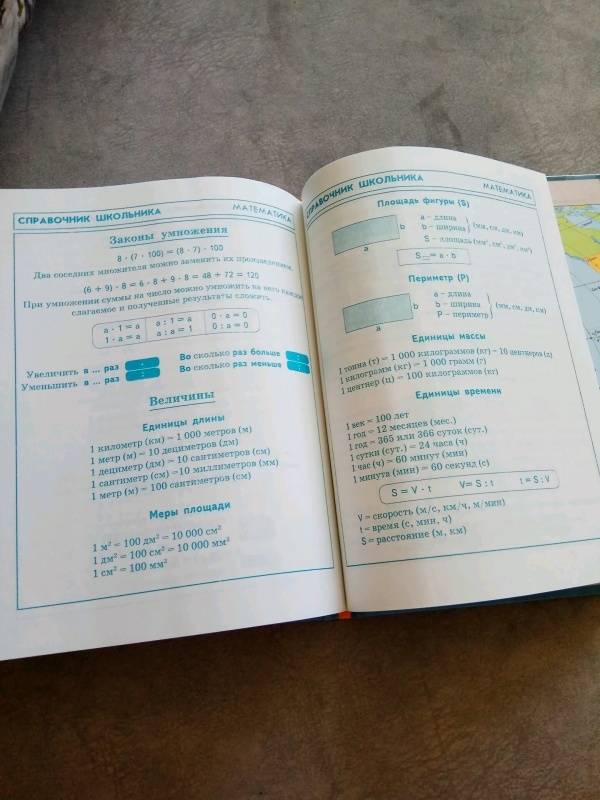 СПРАВОЧНИК ШКОЛЬНИКА МАТЕМАТИКА
Законы умножения
8 · (7 · 100) = (8 · 7) · 100
Два соседних множителя можно заменить их произведением.
(6 + 9) · 8 = 6 · 8 + 9 · 8 = 48 + 72 = 120
При умножении суммы на число можно умножить на него каждое
слагаемое и полученные результаты сложить.
a · 1 = a a : 1 = a 0 · a = 0
1 · a = a a : a = 1 0 : a = 0
Увеличить в ... раз · Во сколько раз больше :
Уменьшить в ... раз : Во сколько раз меньше :
Величины
Единицы длины
1 километр (км) = 1 000 метров (м)
1 метр (м) = 10 дециметров (дм)
1 дециметр (дм) = 10 сантиметров (см)
1 сантиметр (см) = 10 миллиметров (мм)
1 метр (м) = 100 сантиметров (см)
Меры площади
1 м² = 100 дм² = 10 000 см²
1 дм² = 100 см² = 10 000 мм²
1 см² = 100 мм²
СПРАВОЧНИК ШКОЛЬНИКА МАТЕМАТИКА
Площадь фигуры (S)
a – длина
b b – ширина (мм, см, дм, км)
a S – площадь (мм², см², дм², км²)
S = a · b
Периметр (P)
a – длина
b b – ширина (мм, см, дм, км)
a P – периметр
Единицы массы
1 тонна (т) = 1 000 килограммов (кг) = 10 центнеров (ц)
1 килограмм (кг) = 1 000 грамм (г)
1 центнер (ц) = 100 килограммов (кг)
Единицы времени
1 век = 100 лет
1 год = 12 месяцев (мес.)
1 год = 365 или 366 суток (сут.)
1 сутки (сут.) = 24 часа (ч)
1 час (ч) = 60 минут (мин)
1 минута (мин) = 60 секунд (с)
S = V · t V = S : t t = S : V
V = скорость (м/с, км/ч, м/мин)
t = время (с, мин, ч)
S = расстояние (м, км)